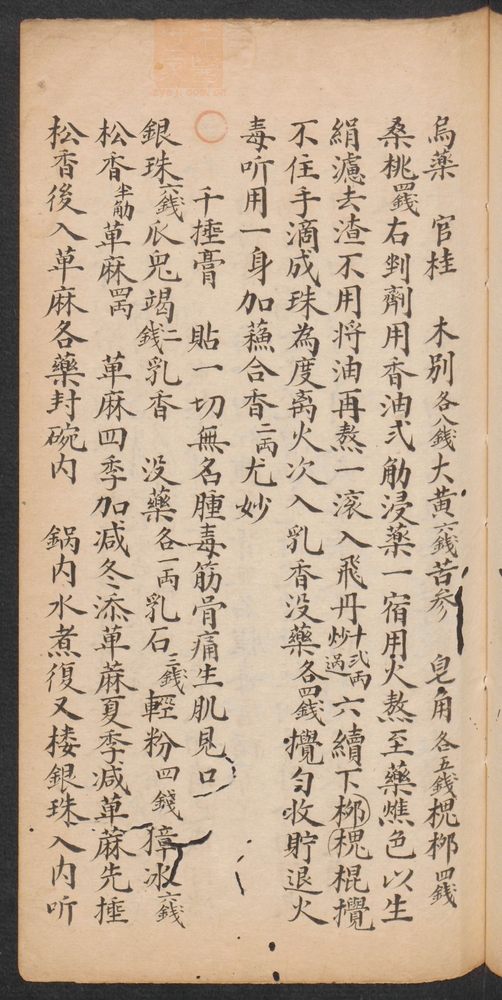 烏藥　官桂　木別各八錢大黄六錢苦参　皂角各五錢槐栁四錢
桑桃四錢右剉劑用香油弍觔浸藥一宿用火熬至藥燋色以生
絹濾去渣不用将油再熬一滚入飛丹十弍両炒過六續下栁槐棍攪
不住手滴成珠為度离火次入乳香没藥各四錢攪匀收貯退火
毒听用一身加蘓合香二両尤妙
千捶膏　貼一切無名腫毒筋骨痛生肌見口
銀珠六錢瓜兒竭二錢乳香　没藥各一両乳石三錢輕粉四錢獐冰六錢
松香半觔草麻四両　草麻四季加减冬添草蔴夏季减草蔴先捶
松香後入草麻各藥封碗内　鍋内水煮復又搂銀珠入内听